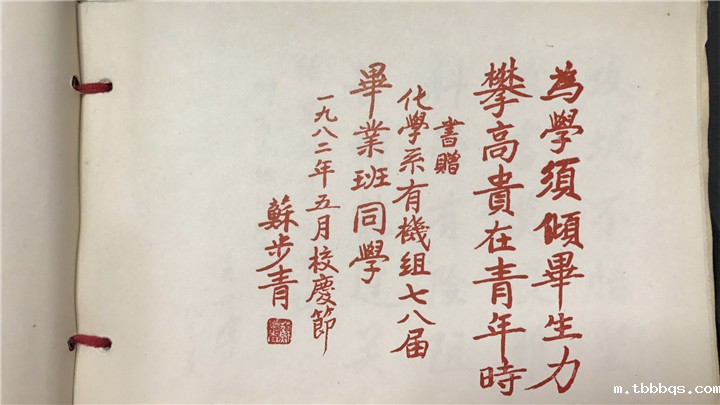 為學須傾畢生力
攀高貴在青年時
書贈
化學系有機組七八届
畢業班同學
一九八二年五月校慶節
蘇步青
m.tbbbqs.com